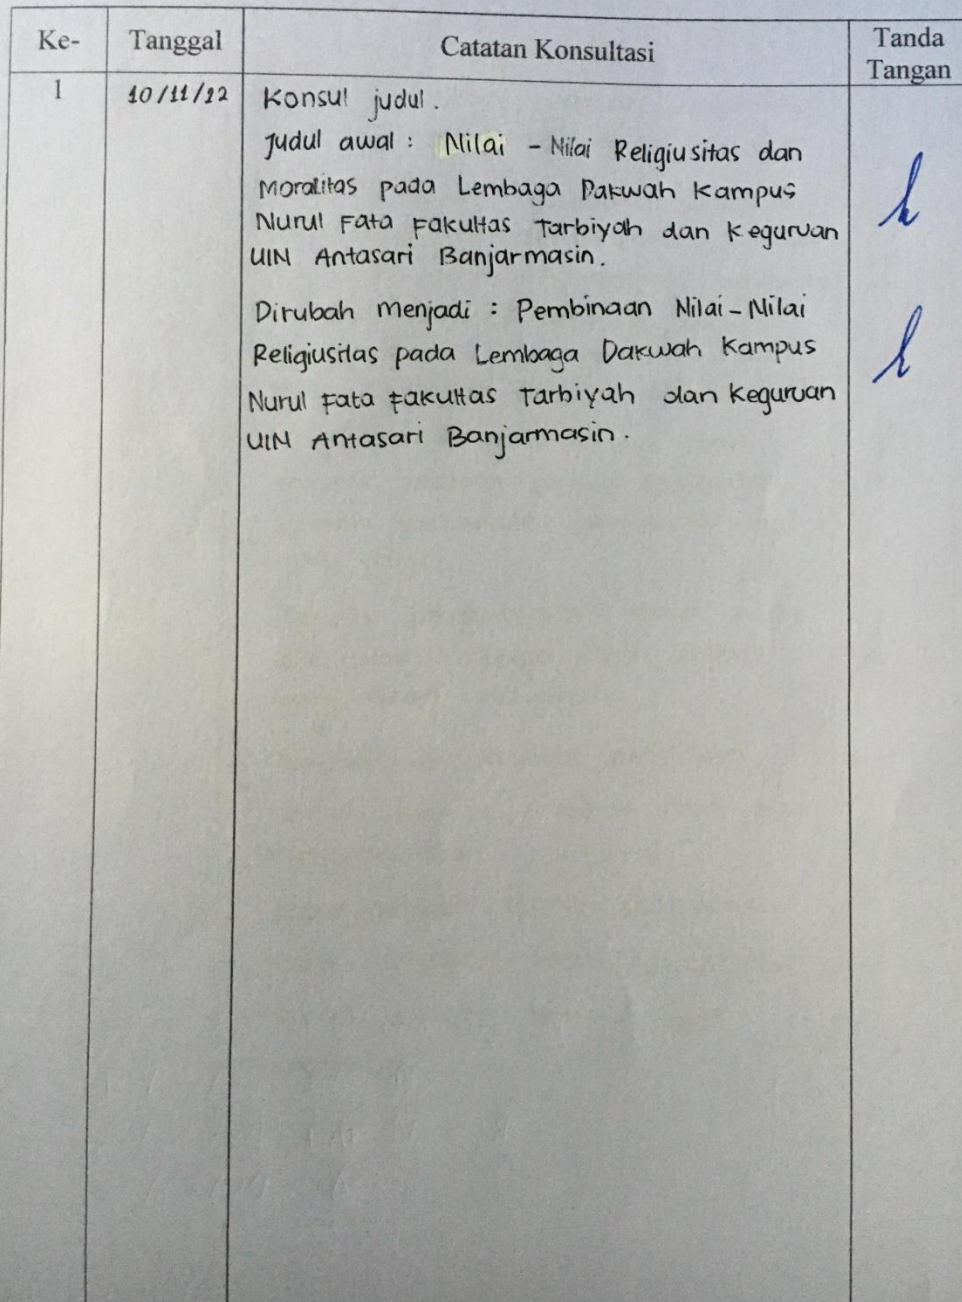 Ke- Tanggal Catatan Konsultasi Tanda Tangan
1 10/11/22 Konsul judul.
Judul awal : Nilai - Nilai Religiusitas dan
Moralitas pada Lembaga Dakwah Kampus
Nurul Fata Fakultas Tarbiyah dan Keguruan
UIN Antasari Banjarmasin.
Dirubah menjadi : Pembinaan Nilai-Nilai
Religiusitas pada Lembaga Dakwah Kampus
Nurul Fata Fakultas Tarbiyah dan Keguruan
UIN Antasari Banjarmasin.